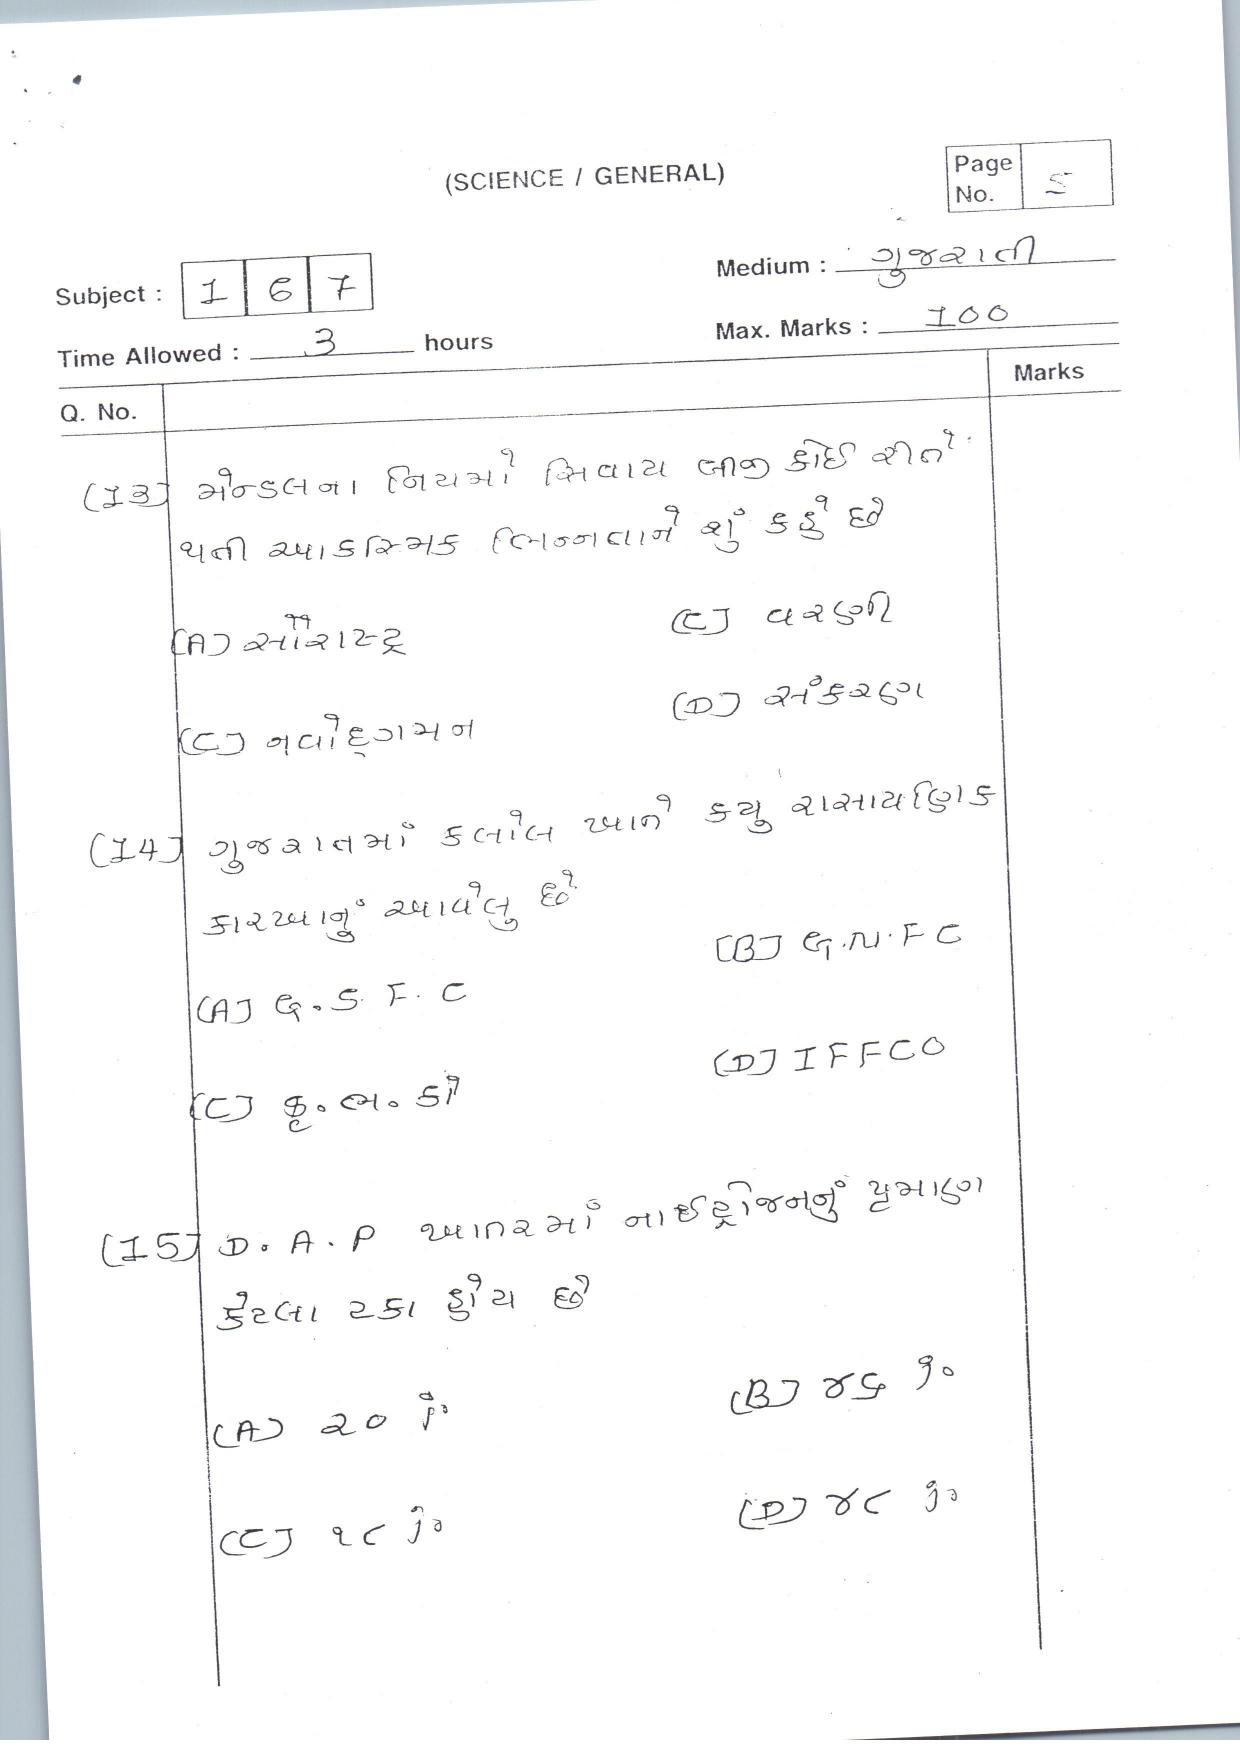 (SCIENCE / GENERAL)
Page No. 5
Subject : 1 6 7
Medium : ગુજરાતી
Time Allowed : 3 hours
Max. Marks : 100
Q. No.
Marks
(13) મેન્ડલના નિયમો સિવાય બીજી કોઈ રીતે
થતી આકસ્મિક ભિન્નતાને શું કહે છે
(A) સૌરાષ્ટ્ર
(C) વરણી
(C) નવોદ્ગમન
(D) સંકરણ
(14) ગુજરાતમાં કલોલ ખાતે કયુ રાસાયણિક
કારખાનું આવેલુ છે
(A) G.S.F.C
(B) G.N.F C
(C) કૃ.ભ.કો
(D) IFFCO
(15) D.A.P ખાતરમાં નાઈટ્રોજનનું પ્રમાણ
કેટલા ટકા હોય છે
(A) ૨૦ %
(B) ૪૬ %
(C) ૧૮ %
(D) ૪૮ %